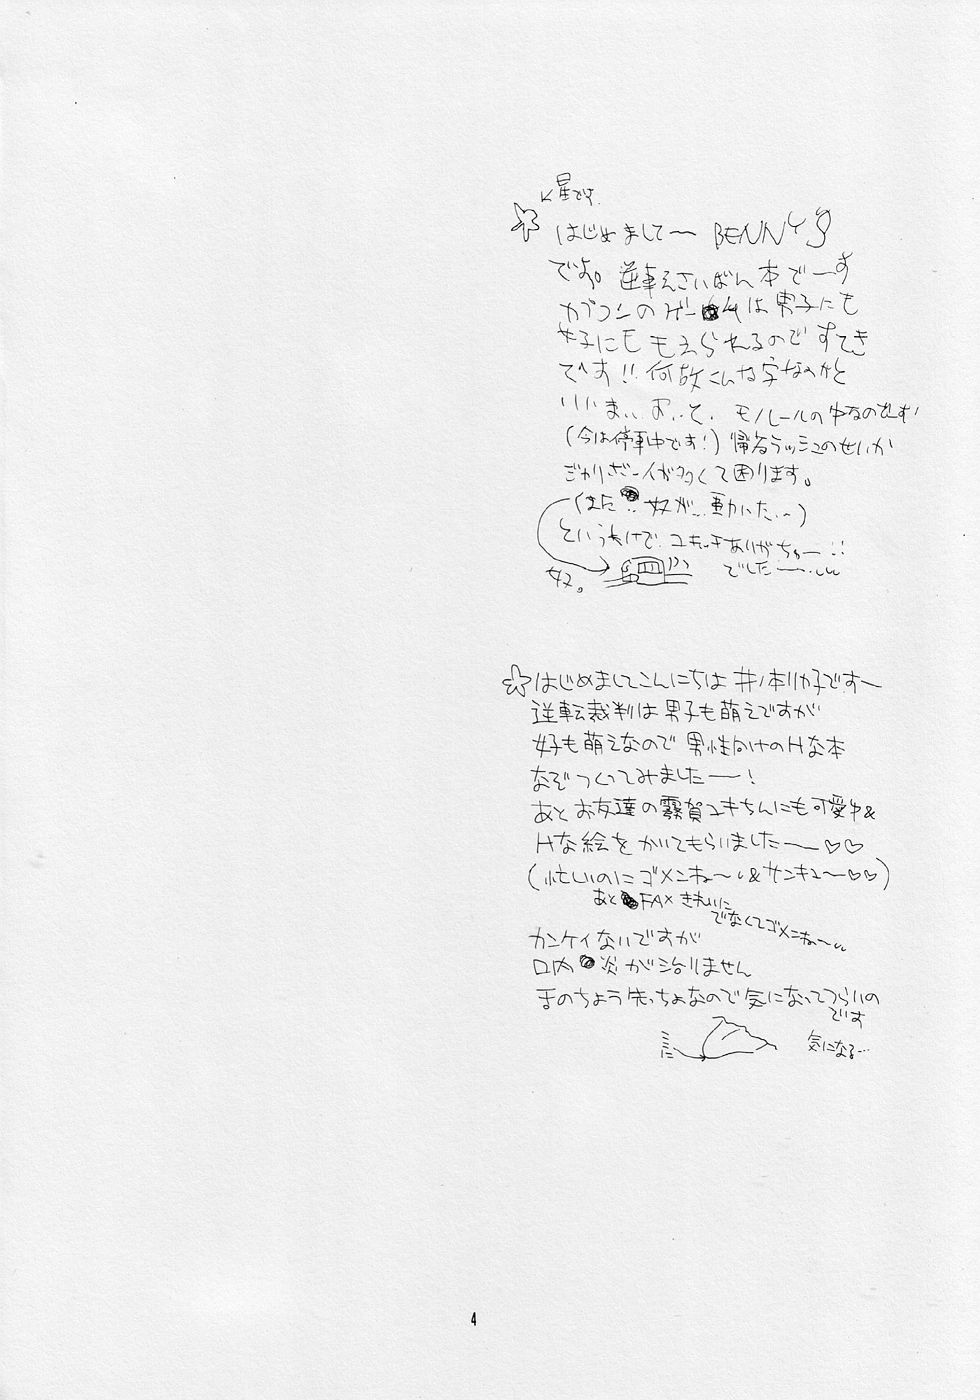 ↙星です。
はじめまして〜 BENNY'S
です。逆転さいばん本でーす
カプコンのゲームは男子にも
女子にももえられるのですてき
です!! 何故こんな字なのかと
いいま… モノレールの中なのです!
(今は停車中です!) 帰省ラッシュのせいか
人が多くて困ります。
(また 奴が… 動いた…)
というわけで、ユキっちありがちゅー!!
でした——…
奴。
☆はじめましてこんにちは 井ノ本リカ子です〜
逆転裁判は男子も萌えですが
女子も萌えなので 男性向けのHな本
なぞつくってみましたー!
あとお友達の霧賀ユキちんにも可愛い&
Hな絵をかいてもらいました——♡♡
(忙しいのにゴメンね〜 & サンキュー♡♡)
あと FAXきれいに
でなくてゴメンね〜
カンケイないですが
口内炎が治りません
舌のちょう先っちょなので気になってつらいの
です
気になる…
4